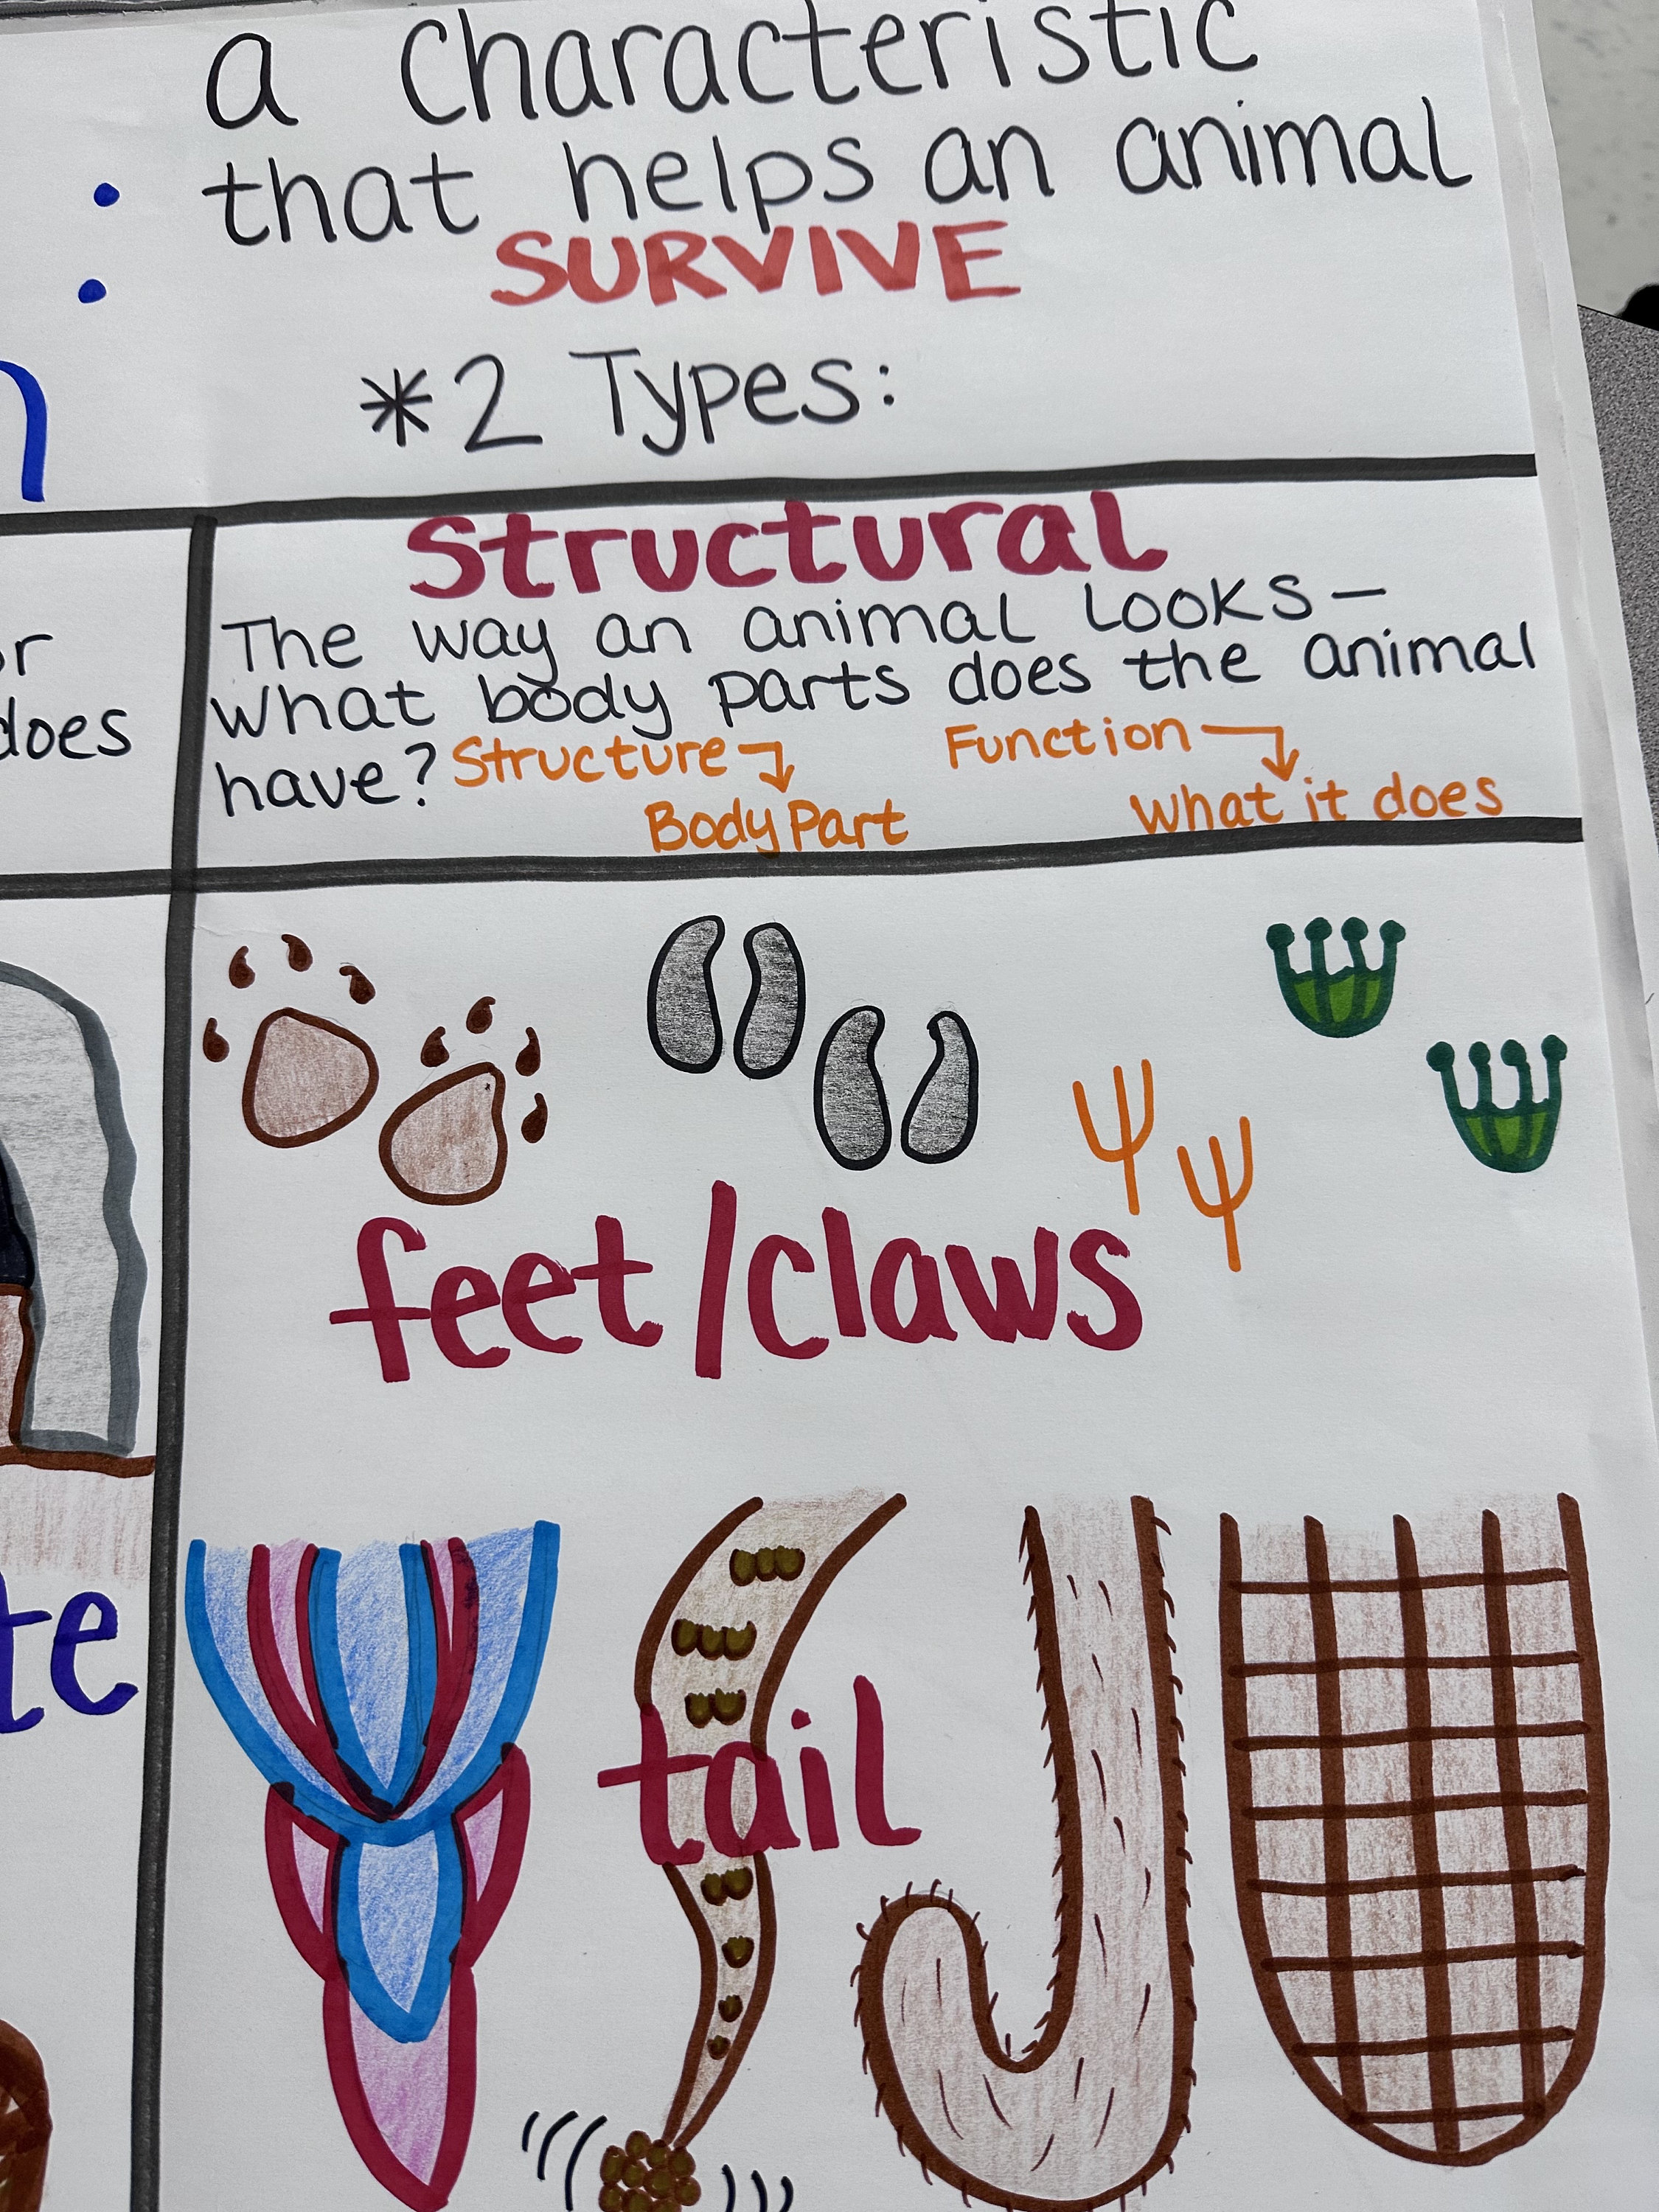 a characteristic
that helps an animal
SURVIVE
*2 Types:
Structural
The way an animal looks—
what body parts does the animal
have? Structure Function
Body Part What it does
does
feet/claws
tail